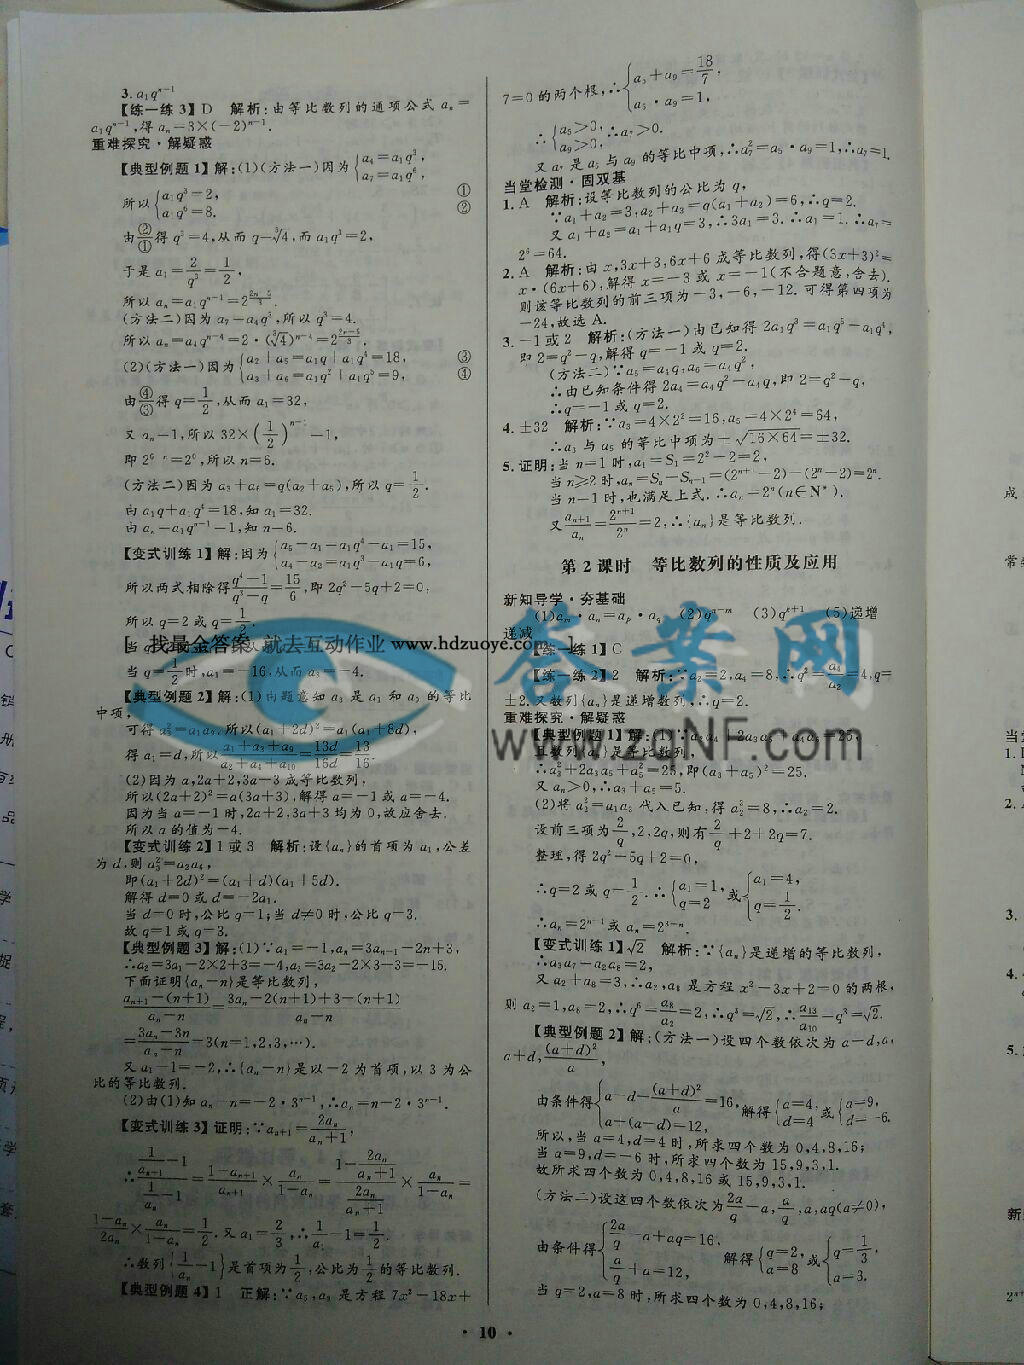 3. a₁qⁿ⁻¹
【练一练 3】D 解析:由等比数列的通项公式 aₙ=
a₁qⁿ⁻¹,得 aₙ=3×(-2)ⁿ⁻¹.
重难探究·解疑惑
【典型例题 1】解:(1)(方法一)因为{a₄=a₁q³,
a₇=a₁q⁶,
所以{a₁q³=2, ①
a₁q⁶=8. ②
由②/①得 q³=4,从而 q=∛4,而 a₁q³=2,
于是 a₁=2/q³=1/2,
(方法二)因为 a₇=a₄q³,所以 q³=4.
(2)(方法一)因为{a₂+a₅=a₁q+a₁q⁴=18, ③
a₃+a₆=a₁q²+a₁q⁵=9, ④
由④/③得 q=1/2,从而 a₁=32,
又 aₙ=1,所以 32×(1/2)ⁿ⁻¹=1,
即 2⁶⁻ⁿ=2⁰,所以 n=6.
(方法二)因为 a₃+a₆=q(a₂+a₅),所以 q=1/2.
由 a₁q+a₁q⁴=18,知 a₁=32.
由 aₙ=a₁qⁿ⁻¹=1,知 n=6.
【变式训练 1】解:因为{a₅-a₁=a₁q⁴-a₁=15,
a₄-a₂=a₁q³-a₁q=6,
所以两式相除得(q⁴-1)/(q³-q)=15/6,即 2q²-5q+2=0,
所以 q=2 或 q=1/2.
找最全答案 就去互动作业 www.hdzuoye.com
当 q=1/2时,a₁=-16,从而 a₃=-4.
【典型例题 2】解:(1)由题意知 a₃ 是 a₁ 和 a₉ 的等比
中项,
可得 a₃²=a₁a₉,所以(a₁+2d)²=a₁(a₁+8d),
得 a₁=d,所以(a₁+a₃+a₉)/(a₂+a₄+a₁₀)=13d/16d=13/16.
(2)因为 a,2a+2,3a+3 成等比数列,
所以(2a+2)²=a(3a+3),解得 a=-1 或 a=-4.
因为当 a=-1 时,2a+2,3a+3 均为 0,故应舍去.
所以 a 的值为-4.
【变式训练 2】1 或 3 解析:设{aₙ}的首项为 a₁,公差
为 d,则 a₃²=a₂a₆,
即(a₁+2d)²=(a₁+d)(a₁+5d).
解得 d=0 或 d=-2a₁.
当 d=0 时,公比 q=1;当 d≠0 时,公比 q=3.
故 q=1 或 q=3.
【典型例题 3】解:(1)∵a₁=-1,aₙ=3aₙ₋₁-2n+3,
∴a₂=3a₁-2×2+3=-4,a₃=3a₂-2×3+3=-15.
下面证明{aₙ-n}是等比数列,
(aₙ₊₁-(n+1))/(aₙ-n)=(3aₙ-2(n+1)+3-(n+1))/(aₙ-n)
=(3aₙ-3n)/(aₙ-n)=3(n=1,2,3,…).
又 a₁-1=-2,∴{aₙ-n}是以-2 为首项,以 3 为公
比的等比数列.
(2)由(1)知 aₙ-n=-2·3ⁿ⁻¹,∴aₙ=n-2·3ⁿ⁻¹.
【变式训练 3】证明:∵aₙ₊₁=2aₙ/(aₙ+1),
∴(1/aₙ₊₁-1)/(1/aₙ-1)=(1-aₙ₊₁)/aₙ₊₁×aₙ/(1-aₙ)=(1-2aₙ/(aₙ+1))/(2aₙ/(aₙ+1))×aₙ/(1-aₙ)=
(1-aₙ)/2aₙ×aₙ/(1-aₙ)=1/2.又 a₁=2/3,∴1/a₁-1=1/2.
∴数列{1/aₙ-1}是首项为1/2,公比为1/2的等比数列.
【典型例题 4】1 正解:∵a₅,a₉ 是方程 7x²-18x+
7=0 的两个根,∴{a₅+a₉=18/7,
a₅·a₉=1,
∴{a₅>0,
a₉>0,∴a₇>0.
又 a₇ 是 a₅ 与 a₉ 的等比中项,∴a₇²=a₅·a₉=1,∴a₇=1.
当堂检测·固双基
1. A 解析:设等比数列的公比为 q,
∵a₁+a₂=3,a₂+a₃=q(a₁+a₂)=6,∴q=2.
又 a₁+a₂=a₁+a₁q=3,∴3a₁=3.∴a₁=1.∴a₇=
2⁶=64.
2. A 解析:由 x,3x+3,6x+6 成等比数列,得(3x+3)²=
x·(6x+6),解得 x=-3 或 x=-1(不合题意,舍去).
则该等比数列的前三项为-3,-6,-12.可得第四项为
-24,故选 A.
3. -1或2 解析:(方法一)由已知得 2a₁q³=a₁q⁵-a₁q⁴,
即 2=q²-q,解得 q=-1 或 q=2.
(方法二)∵a₅=a₄q,a₆=a₄q²,
∴由已知条件得 2a₄=a₄q²-a₄q,即 2=q²-q,
∴q=-1 或 q=2.
4. ±32 解析:∵a₃=4×2²=16,a₅=4×2⁴=64,
∴a₃ 与 a₅ 的等比中项为±√(16×64)=±32.
5. 证明:当 n=1 时,a₁=S₁=2²-2=2,
当 n≥2 时,aₙ=Sₙ-Sₙ₋₁=(2ⁿ⁺¹-2)-(2ⁿ-2)=2ⁿ.
当 n=1 时,也满足上式.∴aₙ=2ⁿ(n∈N*).
又aₙ₊₁/aₙ=2ⁿ⁺¹/2ⁿ=2,∴{aₙ}是等比数列.
第 2 课时 等比数列的性质及应用
新知导学·夯基础
(1)aₘ·aₙ=aₚ·a_q (2)qⁿ⁻ᵐ (3)qᵏ⁺¹ (5)递增
递减
【练一练 1】C
【练一练 2】2 解析:∵a₂=2,a₄=8,∴q²=a₄/a₂=4,q=
±2.又数列{aₙ}是递增数列,∴q=2.
重难探究·解疑惑
【典型例题 1】解:(1)
且数列{aₙ}是等比数列,
∴a₃²+2a₃a₅+a₅²=25,即(a₃+a₅)²=25.
又 aₙ>0,∴a₃+a₅=5.
(2)将 a₂²=a₁a₃ 代入已知,得 a₂³=8,∴a₂=2.
设前三项为2/q,2,2q,则有2/q+2+2q=7.
整理,得 2q²-5q+2=0,
∴q=2 或 q=1/2.∴{a₁=1,
q=2 或{a₁=4,
q=1/2.
∴aₙ=2ⁿ⁻¹或 aₙ=2³⁻ⁿ.
【变式训练 1】√2 解析:∵{aₙ}是递增的等比数列,
∴a₃a₇=a₂a₈=2,
又 a₂+a₈=3,∴a₂,a₈ 是方程 x²-3x+2=0 的两根,
则 a₂=1,a₈=2,∴q⁶=a₈/a₂=2,∴q³=√2,∴a₁₃/a₁₀=q³=√2.
【典型例题 2】解:(方法一)设四个数依次为 a-d,a,
a+d,(a+d)²/a,
由条件得{a-d+(a+d)²/a=16,
a+(a+d)=12, 解得{a=4,
d=4 或{a=9,
d=-6.
所以,当 a=4,d=4 时,所求四个数为 0,4,8,16;
当 a=9,d=-6 时,所求四个数为 15,9,3,1.
故所求四个数为 0,4,8,16 或 15,9,3,1.
(方法二)设这四个数依次为2a/q-a,a/q,a,aq(a≠0),
由条件得{2a/q-a+aq=16,
a/q+a=12, 解得{q=2,
a=8 或{q=1/3,
a=3.
当 q=2,a=8 时,所求四个数为 0,4,8,16;
答案网
www.zqNF.com
· 10 ·